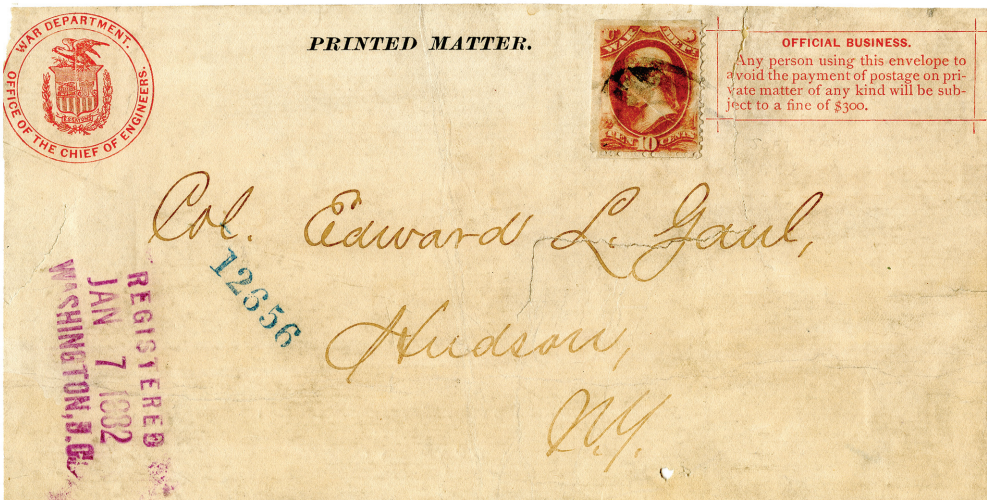 WAR DEPARTMENT.
OFFICE OF THE CHIEF OF ENGINEERS.
ESSAYONS
PRINTED MATTER.
WAR DEPT.
TEN 10 CENTS
OFFICIAL BUSINESS.
Any person using this envelope to
avoid the payment of postage on pri-
vate matter of any kind will be sub-
ject to a fine of $300.
Col. Edward L. Gaul,
12656
Hudson,
N.Y.
REGISTERED
JAN 7 1882
WASHINGTON, D.C.